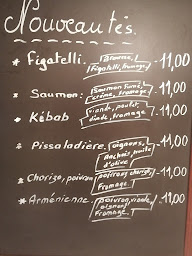 Nouveautés.
* Figatelli. Brousse, Figatelli, fromage. 11,00
* Saumon. Saumon fumé, crème, fromage. 11,00
* Kébab viande, poulet, dinde, fromage 11,00
* Pissaladière. oignons, Anchois, huile d'olive 11,00
* Chorizo, poivrons. poivrons, chorizo, fromage. 11,00
* Arménienne. Poivron, viande, oignon, fromage. 11,00